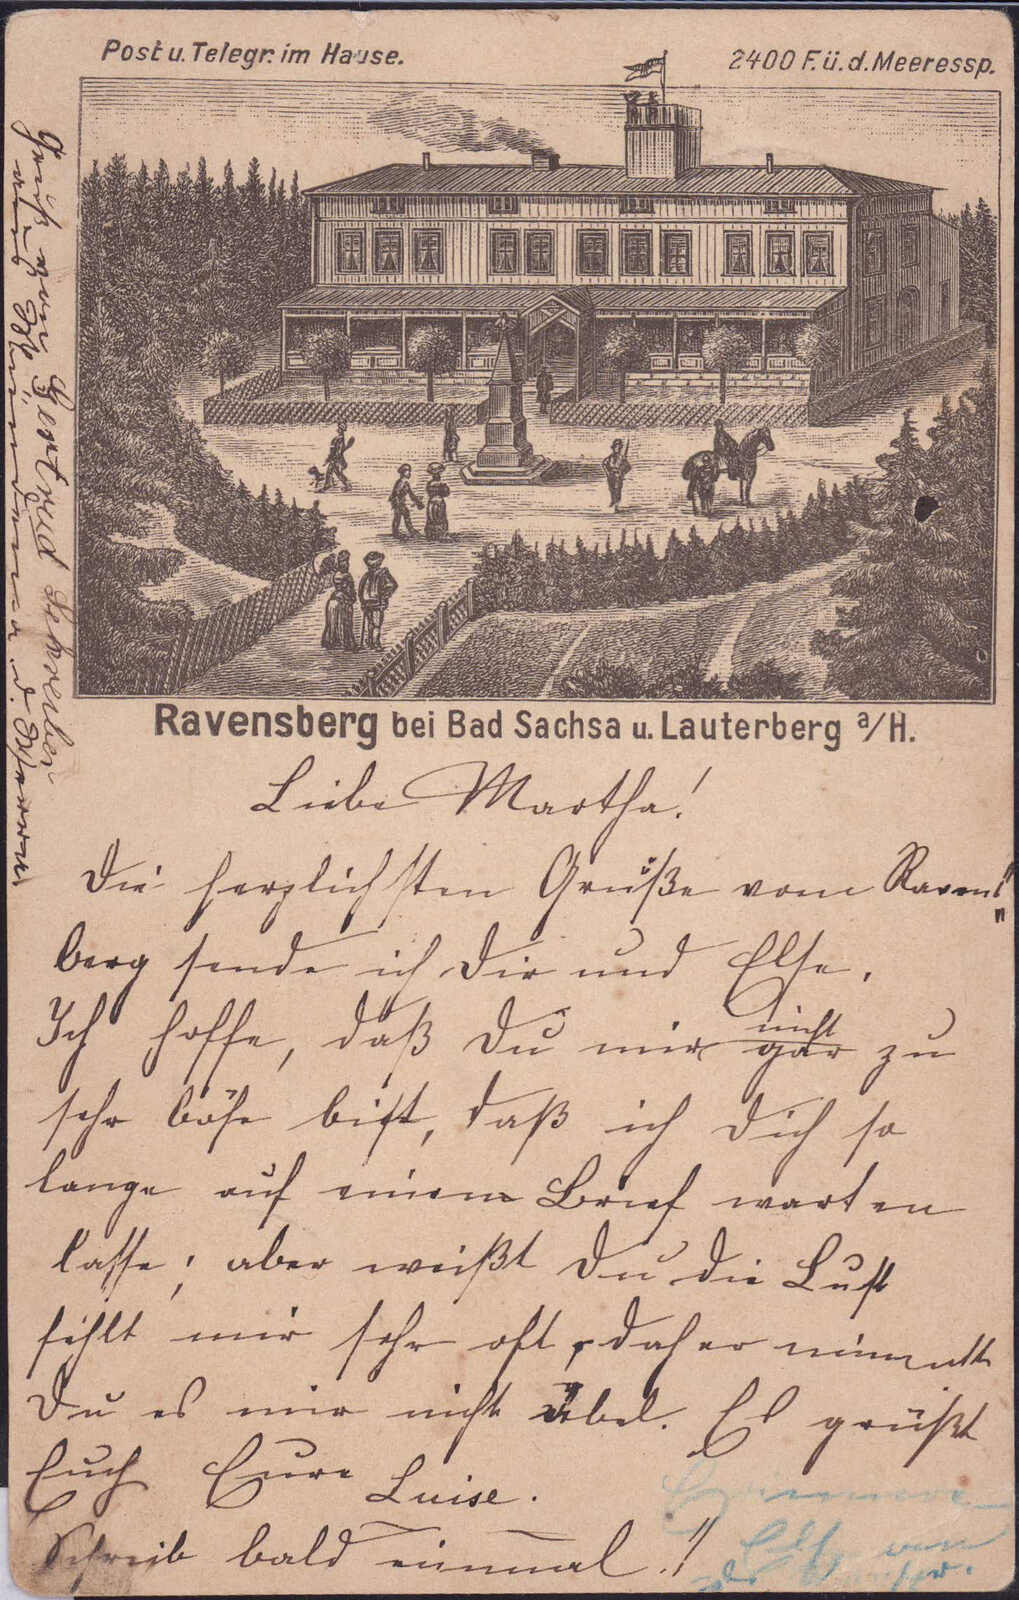 Post u. Telegr. im Hause.
2400 F. ü. d. Meeressp.
Ravensberg bei Bad Sachsa u. Lauterberg a/H.
Liebe Martha!
Die herzlichsten Grüße vom Ravens"
berg sende ich Dir und Else.
Ich hoffe, daß Du mir nicht gar zu
sehr böse bist, daß ich Dich so
lange auf einen Brief warten
lasse; aber weißt Du die Lust
fehlt mir sehr oft, daher nimmst
Du es mir nicht übel. Es grüßt
Euch Eure Luise.
Schreib bald einmal!!
Gruß von Gertrud
und